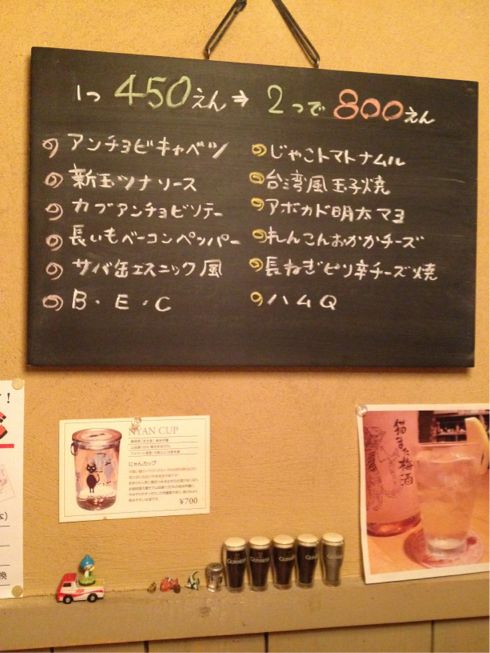 1つ 450えん ⇒ 2つで 800えん
アンチョビキャベツ
新玉ツナソース
カブアンチョビソテー
長いもベーコンペッパー
サバ缶エスニック風
B・E・C
じゃこトマトナムル
台湾風玉子焼
アボカド明太マヨ
れんこんおかかチーズ
長ねぎピリ辛チーズ焼
ハムQ
NYAN CUP
にゃんカップ
¥700
猫また梅酒
GUINNESS
GUINNESS
GUINNESS
GUINNESS